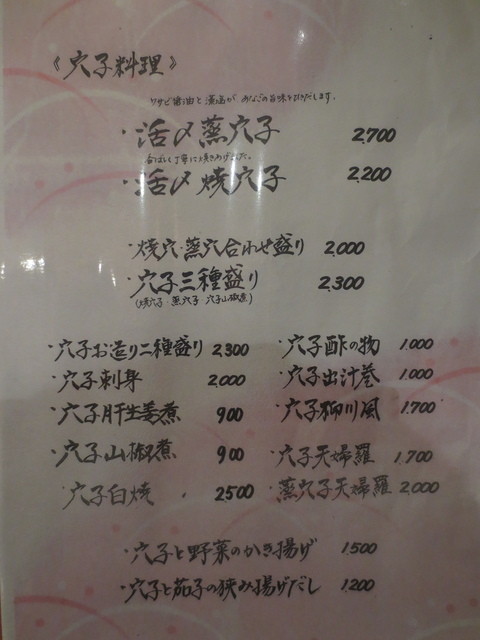 《穴子料理》
ワサビ醤油と薄塩があなごの旨味を引きだします。
・活〆蒸穴子 2,700
香ばしく丁寧に焼きあげました。
・活〆焼穴子 2,200
・焼穴・蒸穴合わせ盛り 2,000
・穴子三種盛り 2,300
(焼穴子・蒸穴子 穴子山椒煮)
・穴子お造り二種盛り 2,300
・穴子刺身 2,000
・穴子肝生姜煮 900
・穴子山椒煮 900
・穴子白焼 2500
・穴子酢の物 1,000
・穴子出汁巻 1,000
・穴子柳川風 1,700
・穴子天婦羅 1,700
・蒸穴子天婦羅 2,000
・穴子と野菜のかき揚げ 1,500
・穴子と茄子の狭み揚げだし 1,200